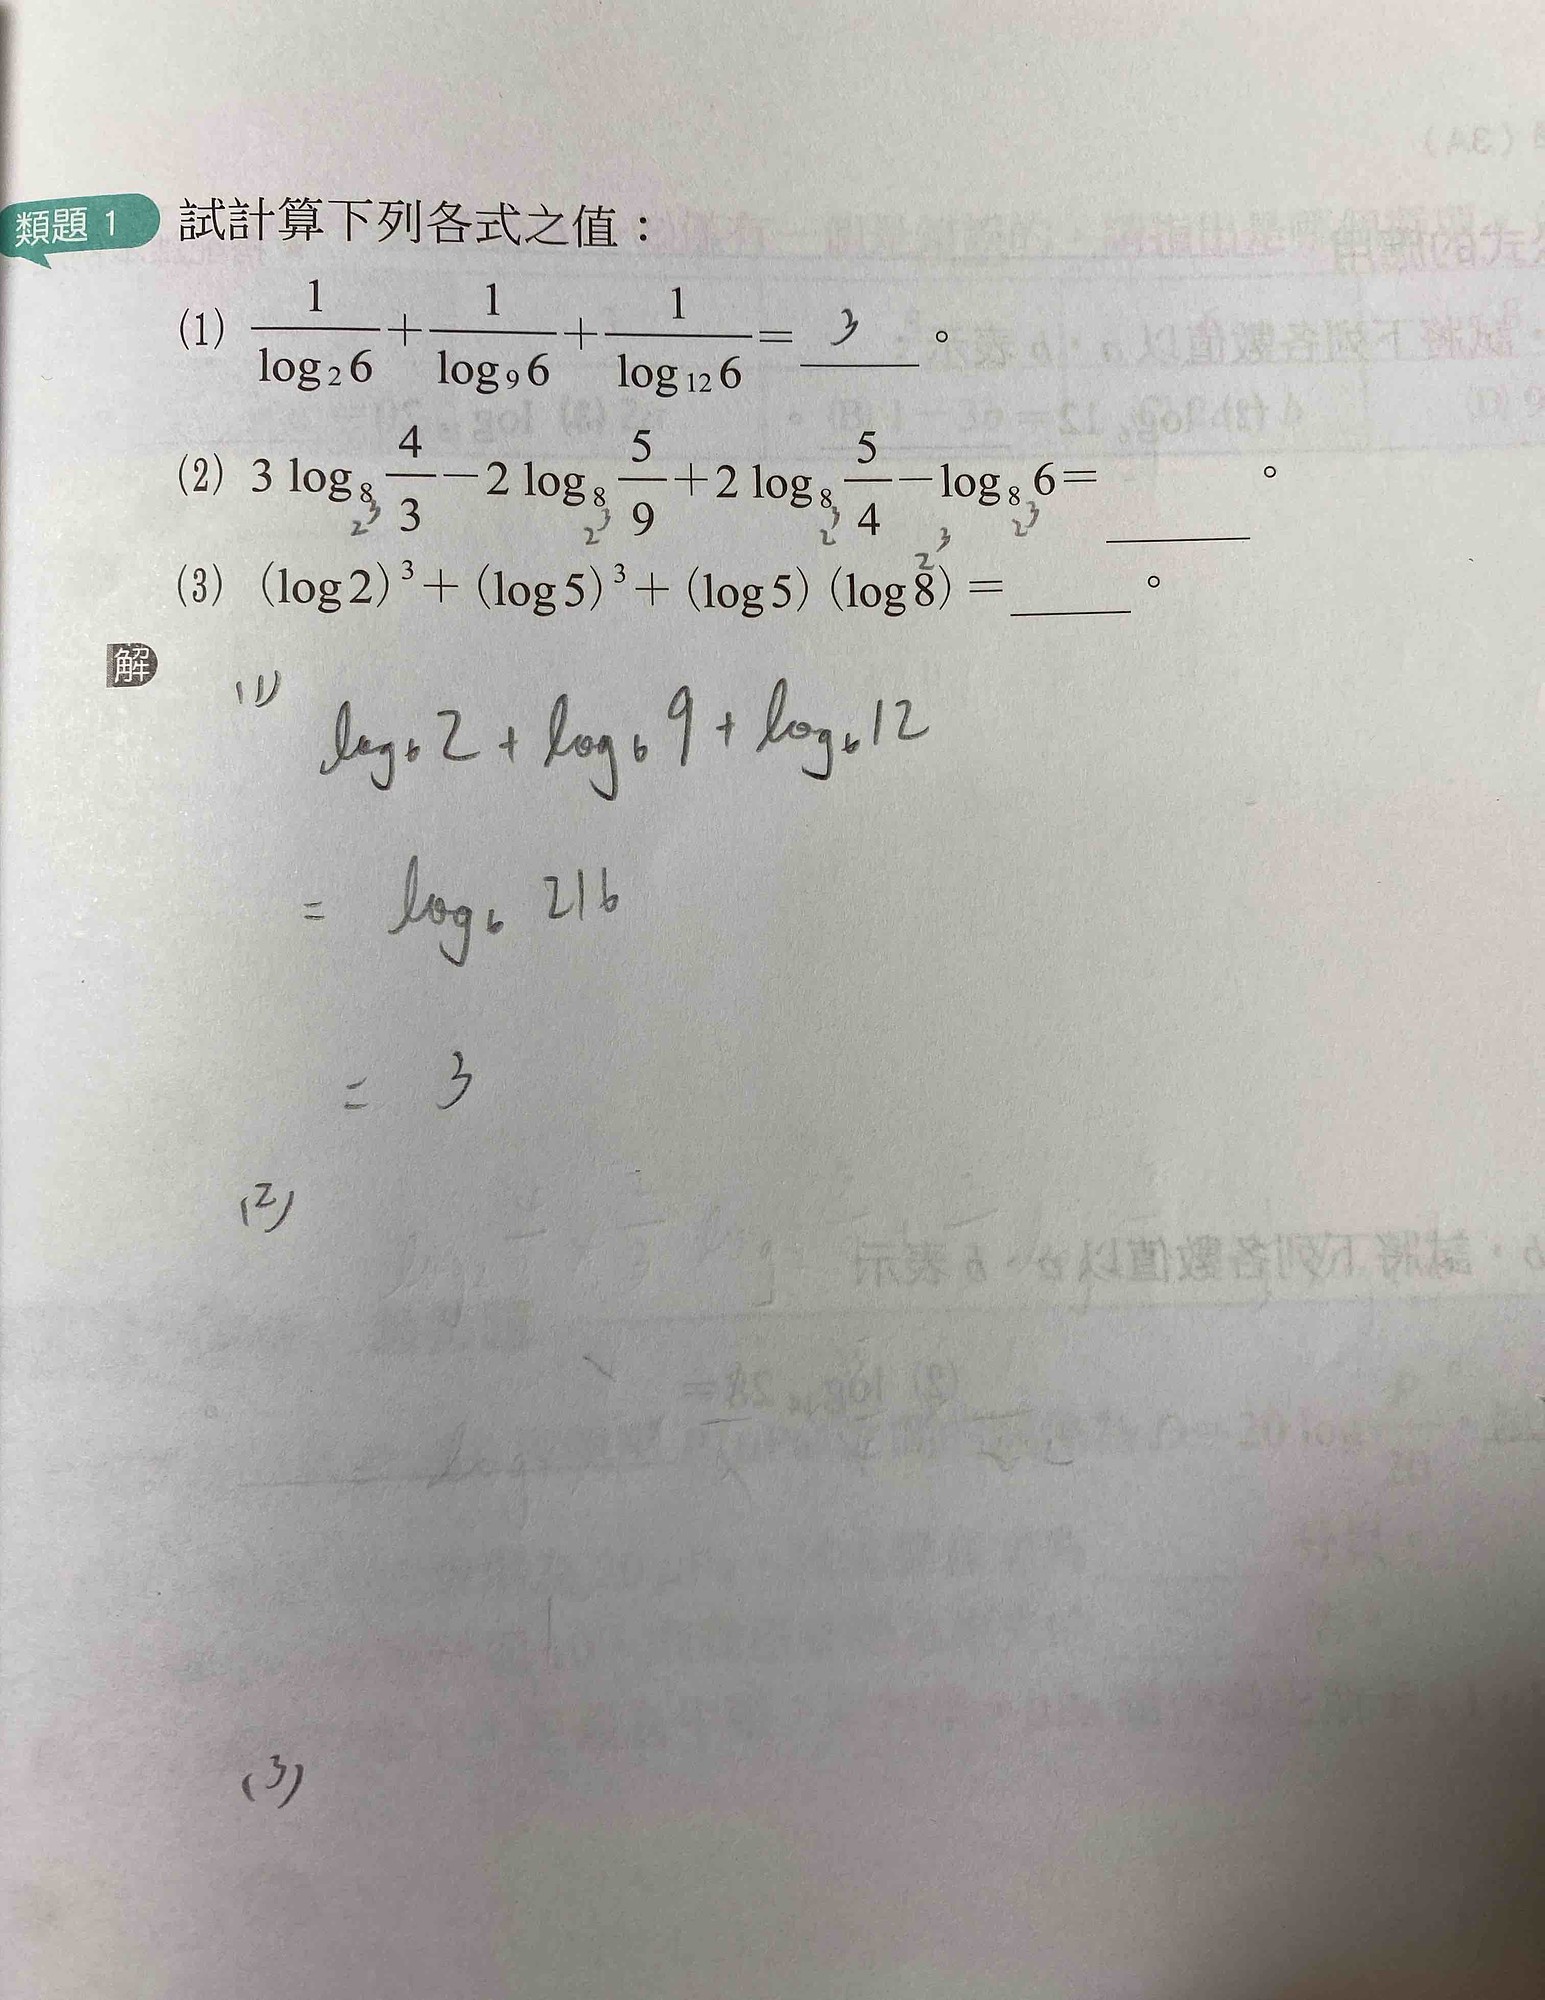 類題 1 試計算下列各式之值：
(1) 1/log₂6 + 1/log₉6 + 1/log₁₂6 = 3 。
(2) 3 log₈ 4/3 − 2 log₈ 5/9 + 2 log₈ 5/4 − log₈ 6 = ____ 。
2³ 2³ 2³ 2³
2³
(3) (log 2)³ + (log 5)³ + (log 5)(log 8) = ____ 。
解
(1) log₆ 2 + log₆ 9 + log₆ 12
= log₆ 216
= 3
(2)
(3)